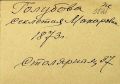 Голубова
секлетия Макаровн
1873г.
Столярная, 27.